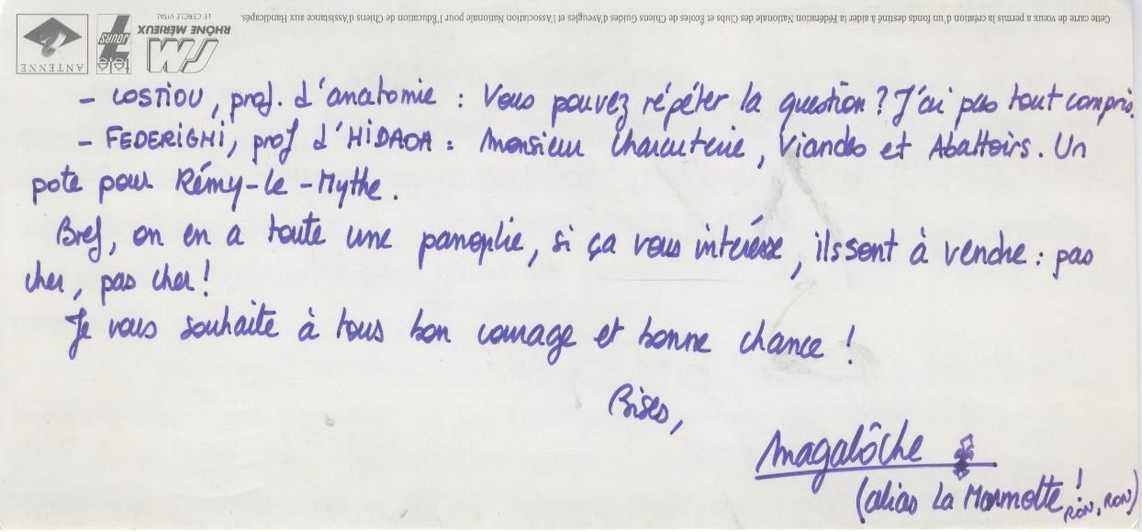 Cette carte de voeux a permis la création d'un fonds destiné à aider la Fédération Nationale des Clubs et Écoles de Chiens Guides d'Aveugles et l'Association Nationale pour l'Éducation de Chiens d'Assistance aux Handicapés.
ANTENNE
télé 7 JOURS
RM
RHÔNE MÉRIEUX
LE CERCLE VITAL
- COSTIOU, prof. d'anatomie : Vous pouvez répéter la question ? J'ai pas tout compris.
- FEDERIGHI, prof d'HIDAOA : Monsieur Charcuterie, Viandes et Abattoirs. Un
pote pour Rémy-le-Mythe.
Bref, on en a toute une panoplie, si ça vous intéresse, ils sont à vendre : pas
cher, pas cher !
Je vous souhaite à tous bon courage et bonne chance !
Bises,
Magalôche
(alias La Marmotte ! RON, RON)